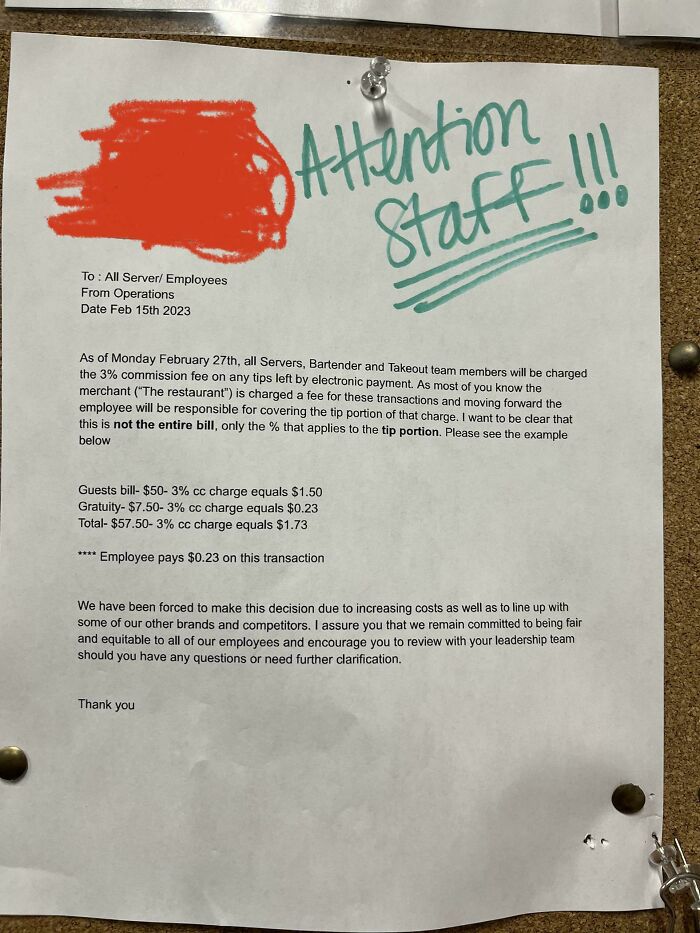 Attention
Staff!!!
To : All Server/ Employees
From Operations
Date Feb 15th 2023
As of Monday February 27th, all Servers, Bartender and Takeout team members will be charged
the 3% commission fee on any tips left by electronic payment. As most of you know the
merchant ("The restaurant") is charged a fee for these transactions and moving forward the
employee will be responsible for covering the tip portion of that charge. I want to be clear that
this is not the entire bill, only the % that applies to the tip portion. Please see the example
below
Guests bill- $50- 3% cc charge equals $1.50
Gratuity- $7.50- 3% cc charge equals $0.23
Total- $57.50- 3% cc charge equals $1.73
**** Employee pays $0.23 on this transaction
We have been forced to make this decision due to increasing costs as well as to line up with
some of our other brands and competitors. I assure you that we remain committed to being fair
and equitable to all of our employees and encourage you to review with your leadership team
should you have any questions or need further clarification.
Thank you